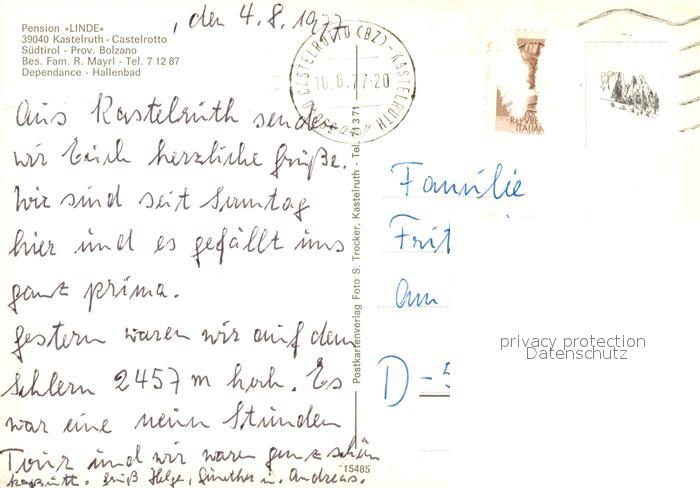 Pension »LINDE«
39040 Kastelruth - Castelrotto
Südtirol - Prov. Bolzano
Bes. Fam. R. Mayrl - Tel. 7 12 87
Dependance - Hallenbad
, den 4.8.1977
CASTELROTTO (BZ) - KASTELRUTH
16.8.77-20
REPVBB
ITALIAN
Aus Kastelruth senden
wir Euch herzliche Grüße.
Wir sind seit Samstag
hier und es gefällt uns
ganz prima.
Gestern waren wir auf dem
Schlern 2457 m hoch. Es
war eine neun Stunden
Tour und wir waren ganz schön
kaputt. Gruß Helga, Günther u. Andreas.
Postkartenverlag Foto S. Trocker, Kastelruth - Tel. 71371
15485
Familie
Frit
Am
D-5
privacy protection
Datenschutz